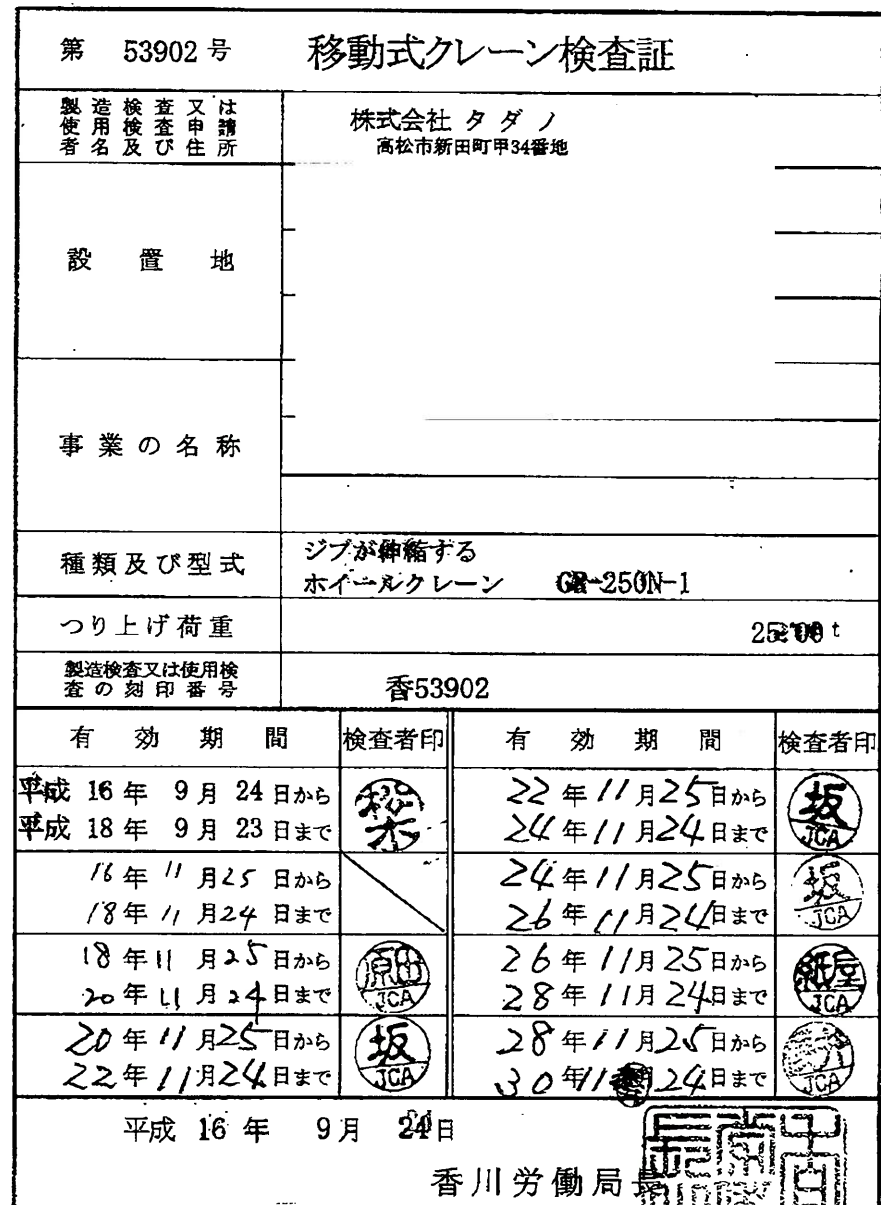 第 53902 号 移動式クレーン検査証
製造検査又は
使用検査申請
者名及び住所
株式会社 タダノ
高松市新田町甲34番地
設置地
事業の名称
種類及び型式
ジブが伸縮する
ホイールクレーン GR-250N-1
つり上げ荷重
25.00 t
製造検査又は使用検
査の刻印番号
香53902
有効期間 検査者印 有効期間 検査者印
平成 16 年 9 月 24 日から
平成 18 年 9 月 23 日まで
16 年 11 月 25 日から
18 年 11 月 24 日まで
18 年 11 月 25 日から
20 年 11 月 24 日まで
原田
JCA
20 年 11 月 25 日から
22 年 11 月 24 日まで
坂
JCA
22 年 11 月 25 日から
24 年 11 月 24 日まで
坂
JCA
24 年 11 月 25 日から
26 年 11 月 24 日まで
坂
JCA
26 年 11 月 25 日から
28 年 11 月 24 日まで
紙屋
JCA
28 年 11 月 25 日から
30 年 11 24 日まで
JCA
平成 16 年 9 月 24 日
香川労働局長